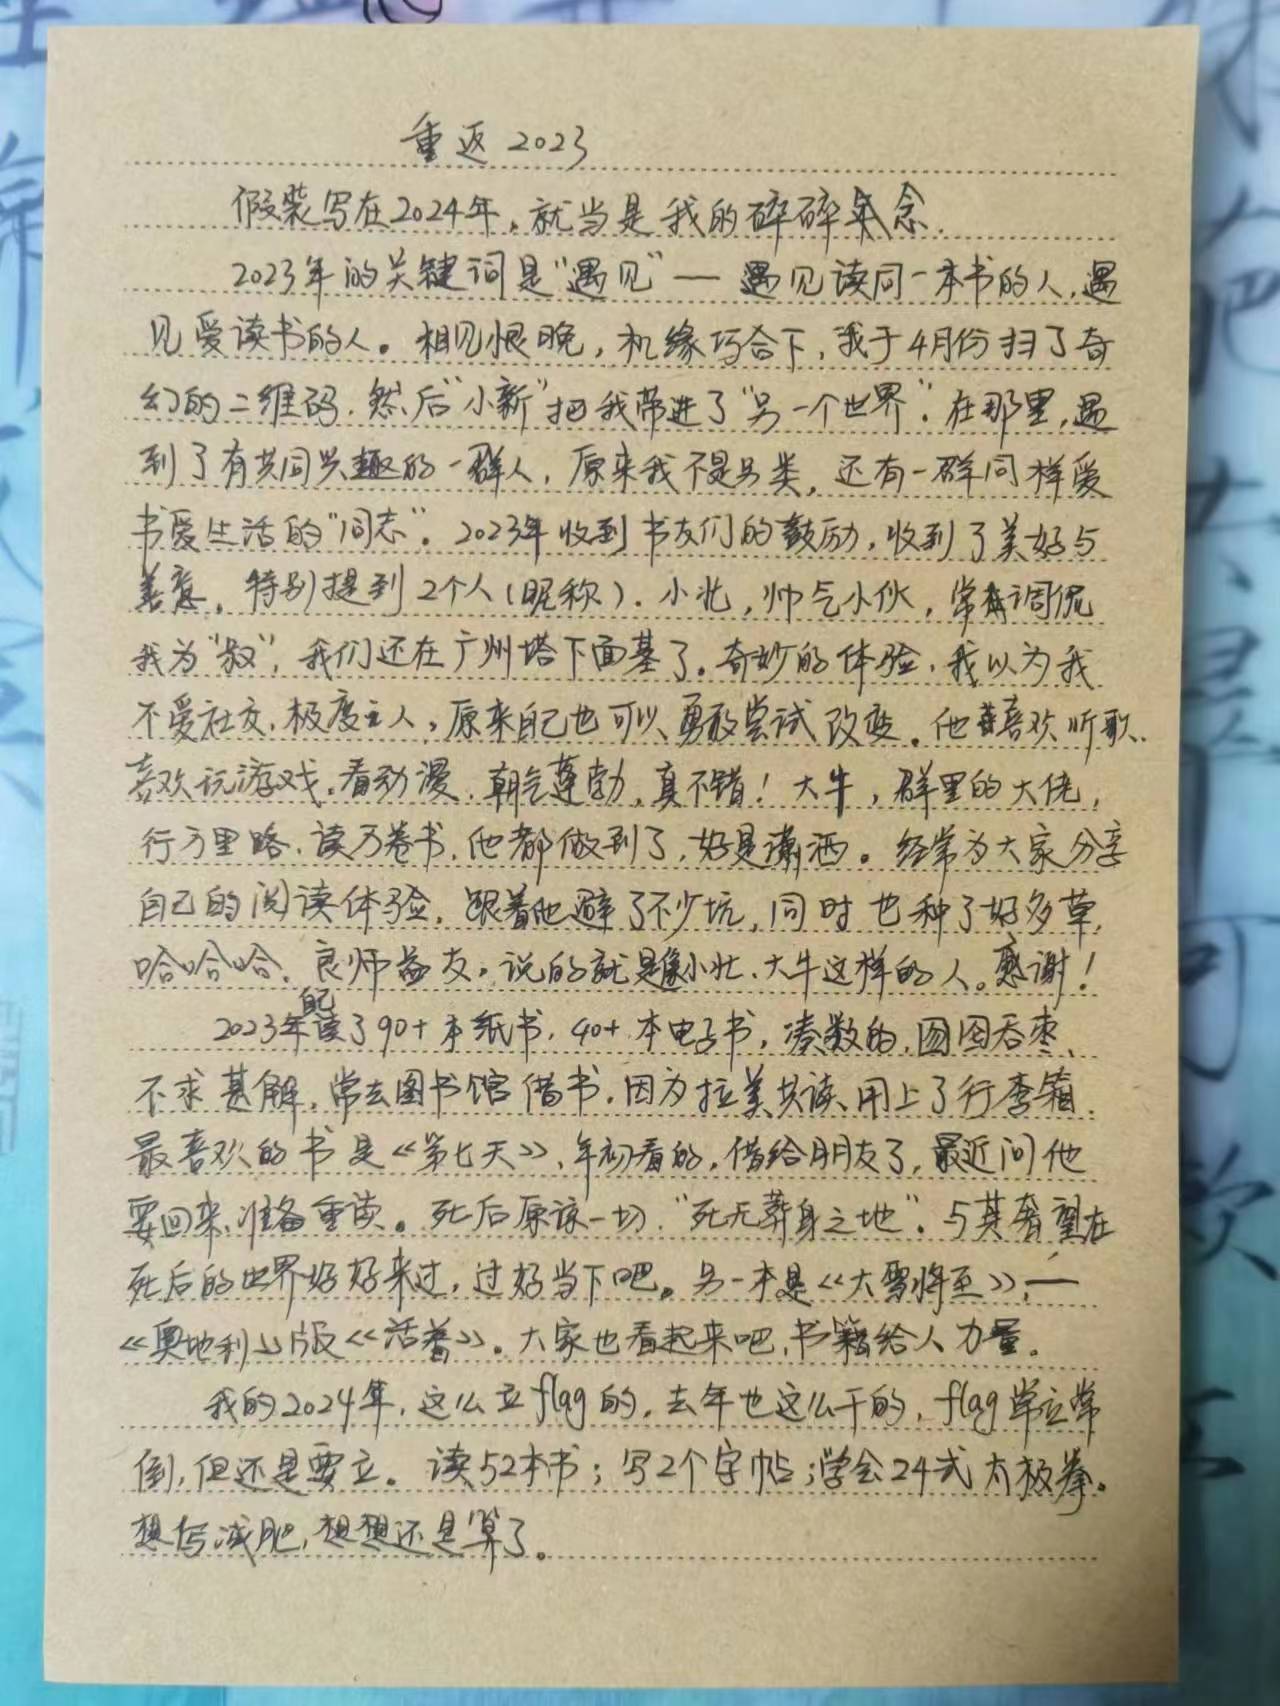 重返2023
假装写在2024年，就当是我的碎碎念.
2023年的关键词是“遇见”— 遇见读同一本书的人，遇
见爱读书的人。相见恨晚，机缘巧合下，我于4月份扫了奇
幻的二维码，然后“小新”把我带进了“另一个世界”．在那里，遇
到了有共同兴趣的一群人，原来我不是另类，还有一群同样爱
书爱生活的“同志”．2023年收到书友们的鼓励，收到了美好与
善意．特别提到2个人（昵称）．小北，帅气小伙，常调侃
我为“叔”，我们还在广州塔下面基了．奇妙的体验，我以为我
不爱社交，极度主人，原来自己也可以勇敢尝试改变．他喜欢听歌、
喜欢玩游戏、看动漫，朝气蓬勃，真不错！大牛，群里的大佬，
行万里路，读万卷书，他都做到了，好是潇洒。经常为大家分享
自己的阅读体验，跟着他避了不少坑，同时也种了好多草，
哈哈哈．良师益友，说的就是像小北、大牛这样的人。感谢！
2023年自己读了90+本纸书，40+本电子书，凑数的，囫囵吞枣、
不求甚解，常去图书馆借书，因为拉美共读，用上了行李箱．
最喜欢的书是《第七天》，年初看的，借给朋友了，最近问他
要回来，准备重读。死后原谅一切，“死无葬身之地”．与其奢望在
死后的世界好好来过，过好当下吧．另一本是《大雪将至》，—
《奥地利》版《活着》．大家也看起来吧，书籍给人力量．
我的2024年，这么立flag的，去年也这么干的，flag常立常
倒，但还是要立。读52本书；写2个字帖；学会24式太极拳。
想写减肥，想想还是算了。